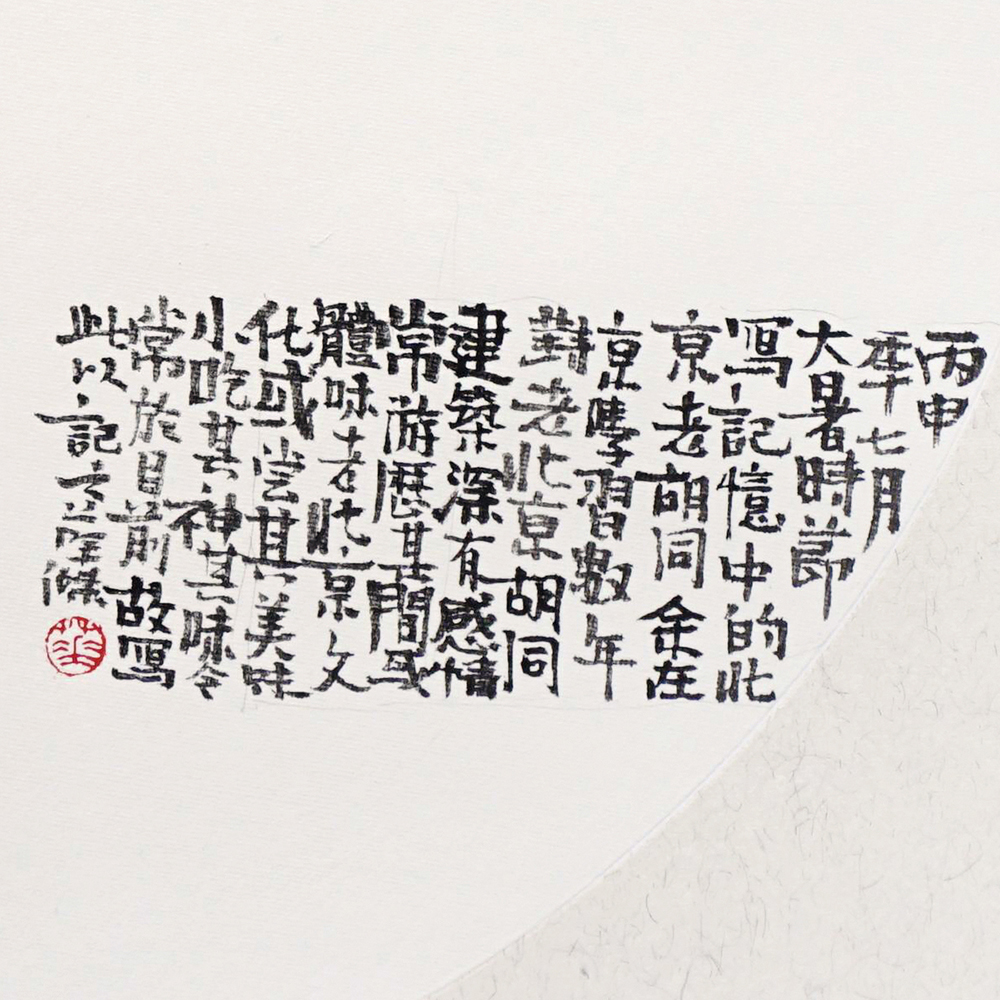 丙申
年七月
大暑時節
寫記憶中的北
京老胡同余在
京學習數年
對老北京胡同
建築深有感情
常游歷其間或
體味老北京文
化或尝其美味
小吃其神其味令
常於目前故寫
此以記之